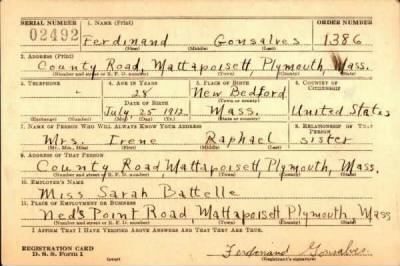 SERIAL NUMBER 1. NAME (Print) ORDER NUMBER
02492 Ferdinand Gonsalves 1386
(First) (Middle) (Last)
2. ADDRESS (Print)
County Road, Mattapoisett, Plymouth, Mass.
(Number and street or R. F. D. number) (Town) (County) (State)
3. TELEPHONE 4. AGE IN YEARS 5. PLACE OF BIRTH 6. COUNTRY OF CITIZENSHIP
28 New Bedford
DATE OF BIRTH (Town or county)
July 25 1912 Mass. United States
(Exchange) (No.) (Mo.) (Day) (Yr.) (State or country)
7. NAME OF PERSON WHO WILL ALWAYS KNOW YOUR ADDRESS 8. RELATIONSHIP OF THAT PERSON
Mrs. Irene Raphael sister
(Mr., Mrs., Miss) (First) (Middle) (Last)
9. ADDRESS OF THAT PERSON
County Road Mattapoisett, Plymouth, Mass.
(Number and street or R. F. D. number) (Town) (County) (State)
10. EMPLOYER'S NAME
Miss Sarah Battelle
11. PLACE OF EMPLOYMENT OR BUSINESS
Ned's Point Road, Mattapoisett, Plymouth, Mass
(Number and street or R. F. D. number) (Town) (County) (State)
I AFFIRM THAT I HAVE VERIFIED ABOVE ANSWERS AND THAT THEY ARE TRUE.
REGISTRATION CARD
D. S. S. Form 1 Ferdinand Gonsalves
(over) (Registrant's signature)